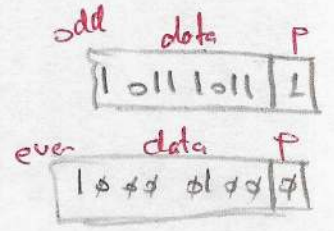 odd data P
1 011 1011 1
even data P
1000 0100 0